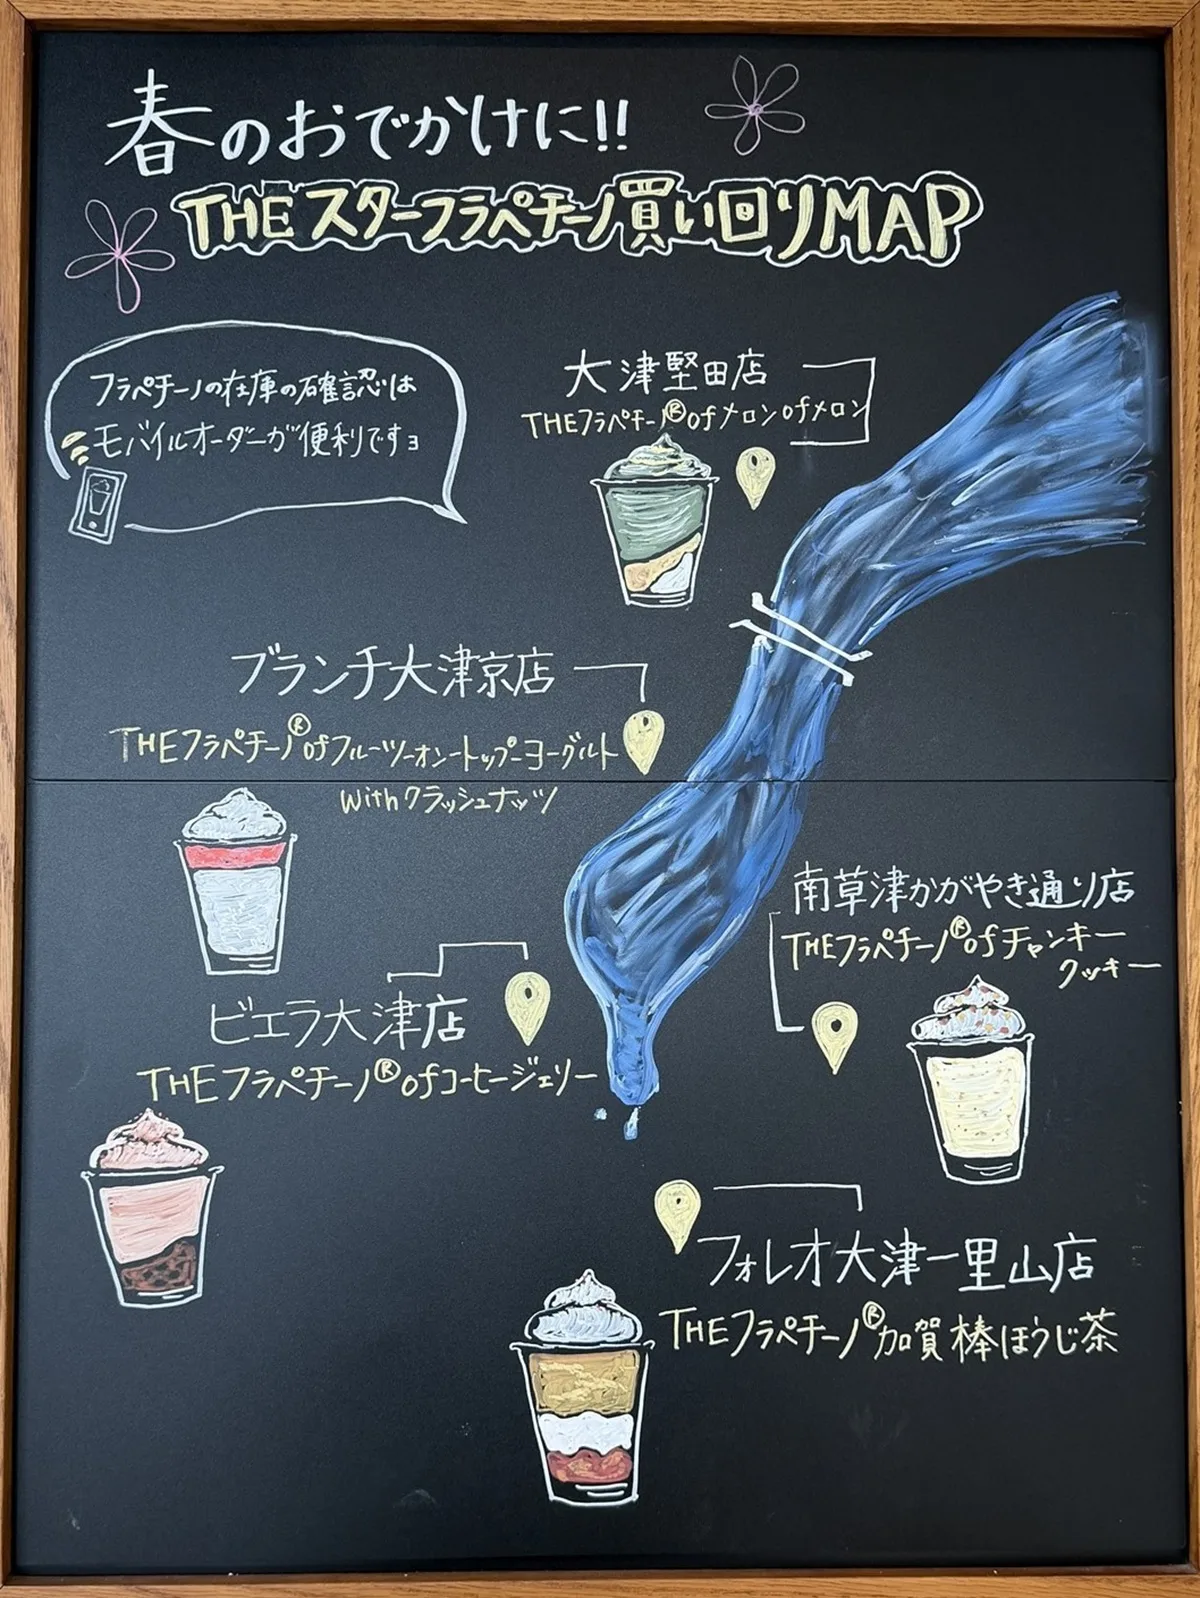 春のおでかけに!!
THEスターフラペチーノ買い回りMAP
フラペチーノの在庫の確認は
モバイルオーダーが便利ですヨ
大津堅田店
THEフラペチーノ®ofメロンofメロン
ブランチ大津京店
THEフラペチーノ®ofフルーツーオンートップーヨーグルト
withクラッシュナッツ
南草津かがやき通り店
THEフラペチーノ®ofチャンキー
クッキー
ビエラ大津店
THEフラペチーノ®ofコーヒージェリー
フォレオ大津一里山店
THEフラペチーノ®加賀棒ほうじ茶